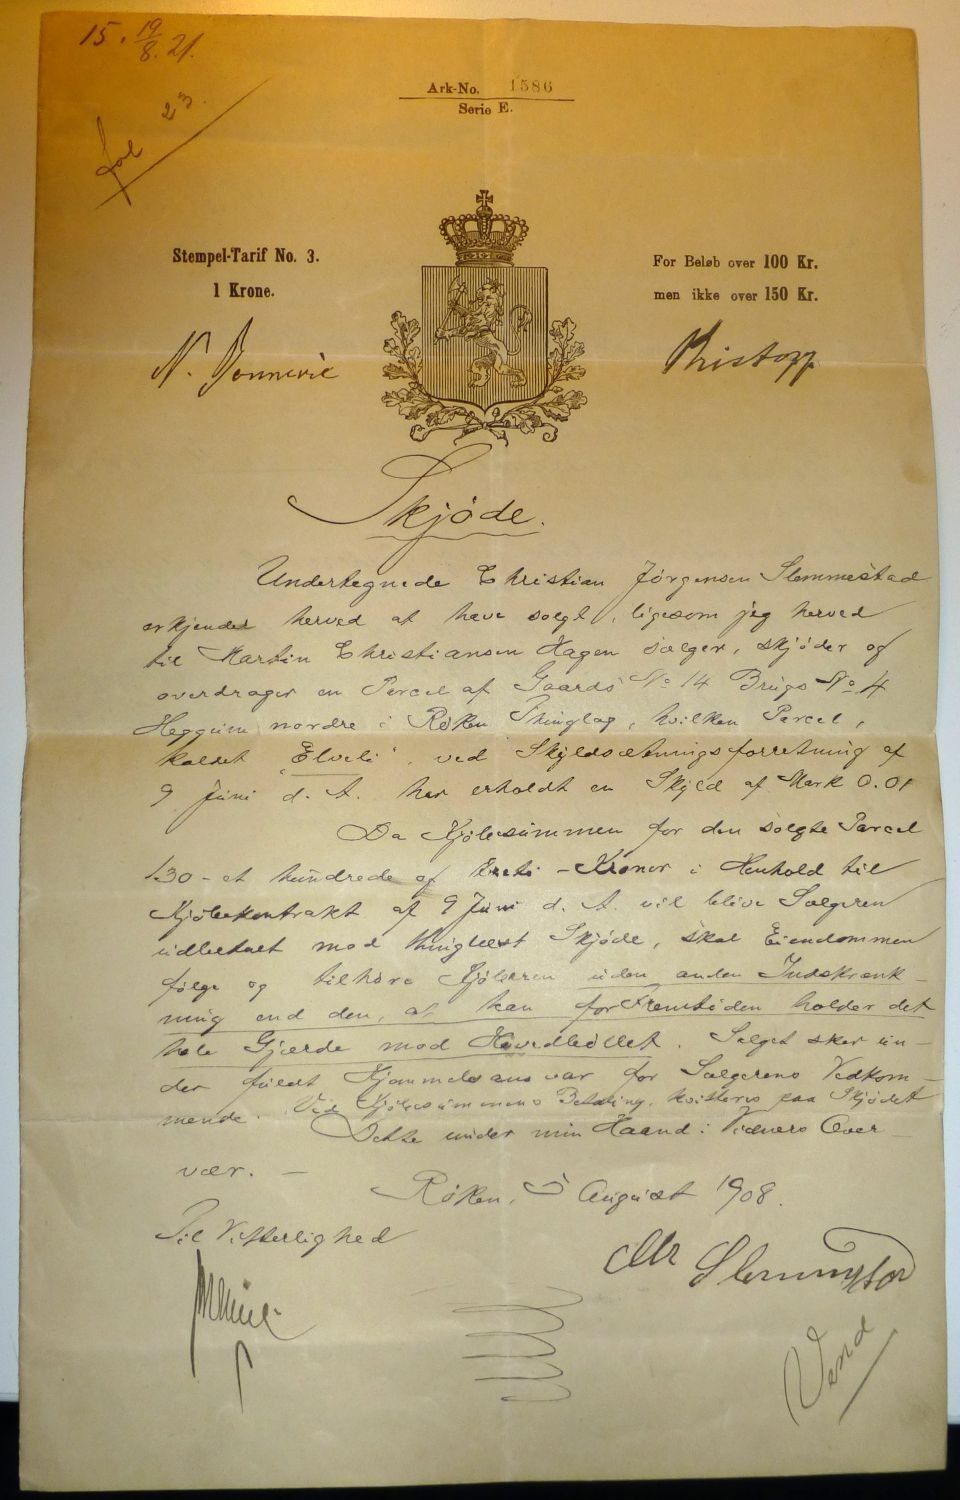 15. 19/8. 21.
fol 23.
Ark-No. 1586
Serie E.
Stempel-Tarif No. 3.
1 Krone.
For Beløb over 100 Kr.
men ikke over 150 Kr.
N. Bonnevie
Skjøde.
Undertegnede Christian Jørgensen Slemmestad
erkjender herved at have solgt, ligesom jeg herved
til Martin Christiansen Hagen sælger, skjøder og
overdrager en Parcel af Gaards No 14 Brugs No 4
Heggum nordre i Røken Thinglag, hvilken Parcel,
kaldet "Elveli", ved Skyldsætningsforretning af
9 Juni d. A. har erholdt en Skyld af Mark 0.01
Da Kjøbesummen for den solgte Parcel
130 - et hundrede og treti - Kroner i Henhold til
Kjøbekontrakt af 9 Juni d. A. vil blive Sælgeren
udbetalt mod thinglæst Skjøde, skal Eiendommen
følge og tilhøre Kjøberen uden anden Indskrænk-
ning end den, at han for Fremtiden holder det
hele Gjærde mod Hovedbøllet. Salget sker un-
der fuldt Hjemmelsansvar for Sælgerens Vedkom-
mende. Ved Kjøbesummens Betaling kvitteres paa Skjødet
Dette under min Haand i Vidners Over-
vær. -
Røken, 5 August 1908.
Til Vitterlighed
Chr Slemmestad
Vend